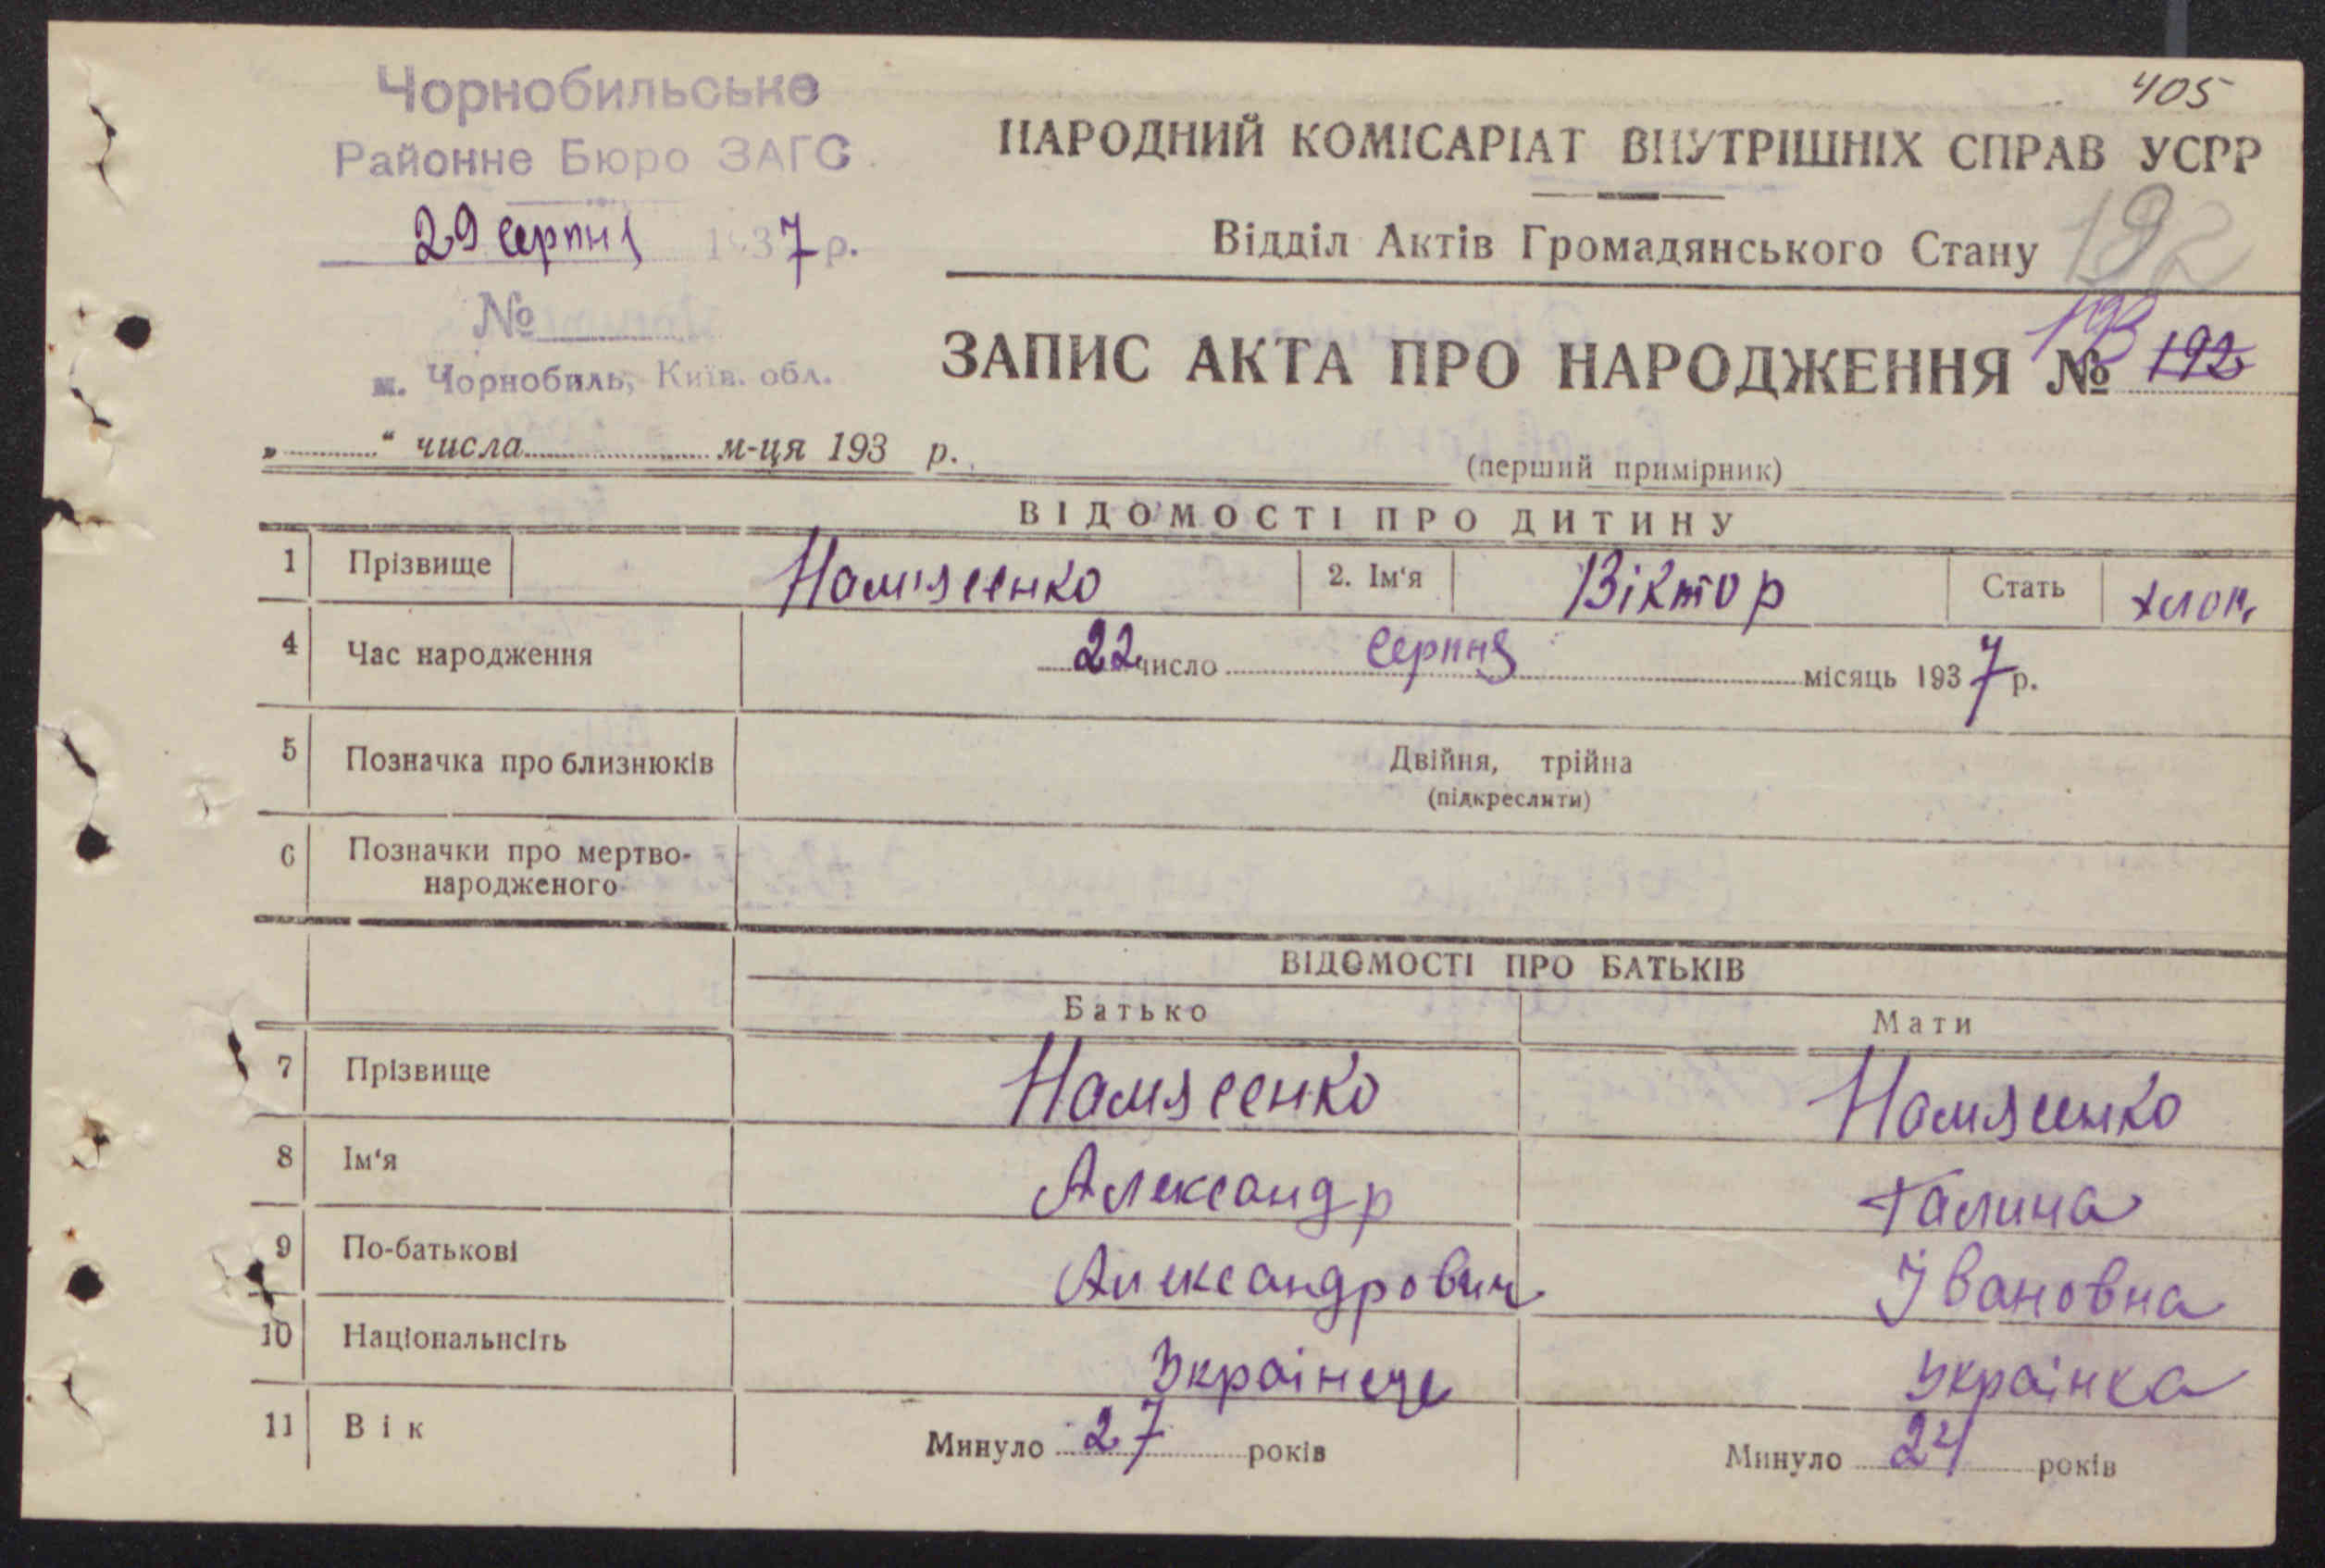 405
Чорнобильське
Районне Бюро ЗАГС
29 серпня 1937 р.
№
м. Чорнобиль, Київ. обл.
НАРОДНИЙ КОМІСАРІАТ ВНУТРІШНІХ СПРАВ УСРР
Відділ Актів Громадянського Стану
192
193
ЗАПИС АКТА ПРО НАРОДЖЕННЯ № 192
„ “ числа м-ця 193 р.
(перший примірник)
ВІДОМОСТІ ПРО ДИТИНУ
1 Прізвище Намясенко 2. Ім'я Віктор Стать хлоп.
4 Час народження 22 число серпня місяць 1937 р.
5 Позначка про близнюків Двійня, трійна
(підкреслити)
6 Позначки про мертво-
народженого
ВІДОМОСТІ ПРО БАТЬКІВ
Батько Мати
7 Прізвище Намясенко Намясенко
8 Ім'я Александр Галина
9 По-батькові Александрович Івановна
10 Національнсіть Украінець Украінка
11 Вік Минуло 27 років Минуло 24 років